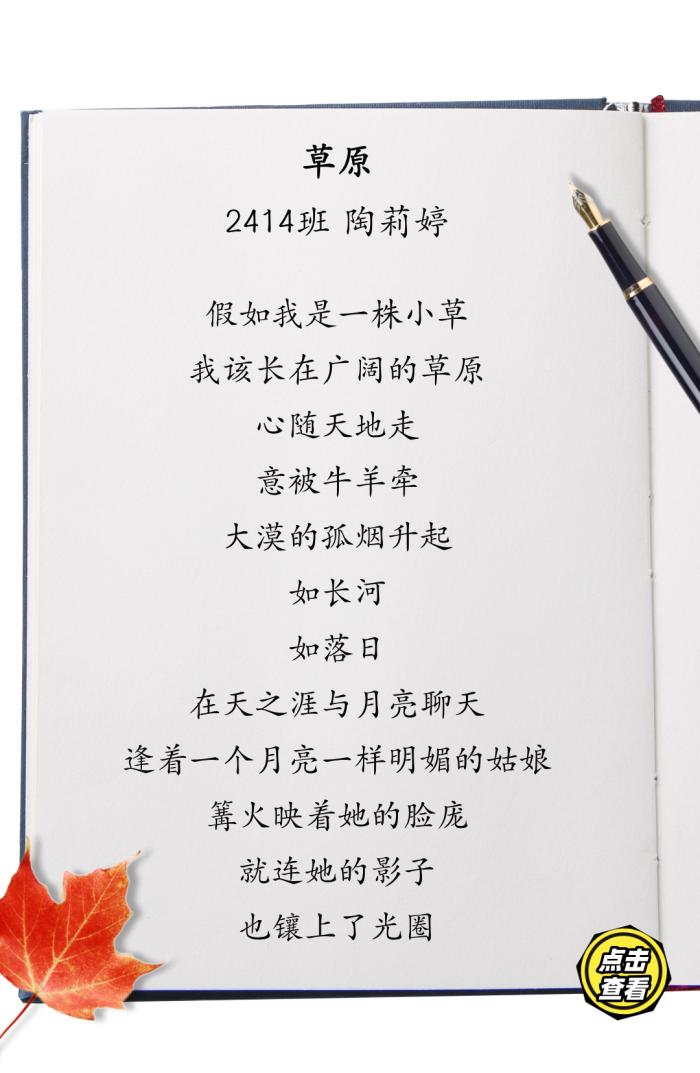 草原
2414班 陶莉婷
假如我是一株小草
我该长在广阔的草原
心随天地走
意被牛羊牵
大漠的孤烟升起
如长河
如落日
在天之涯与月亮聊天
逢着一个月亮一样明媚的姑娘
篝火映着她的脸庞
就连她的影子
也镶上了光圈
点击
查看